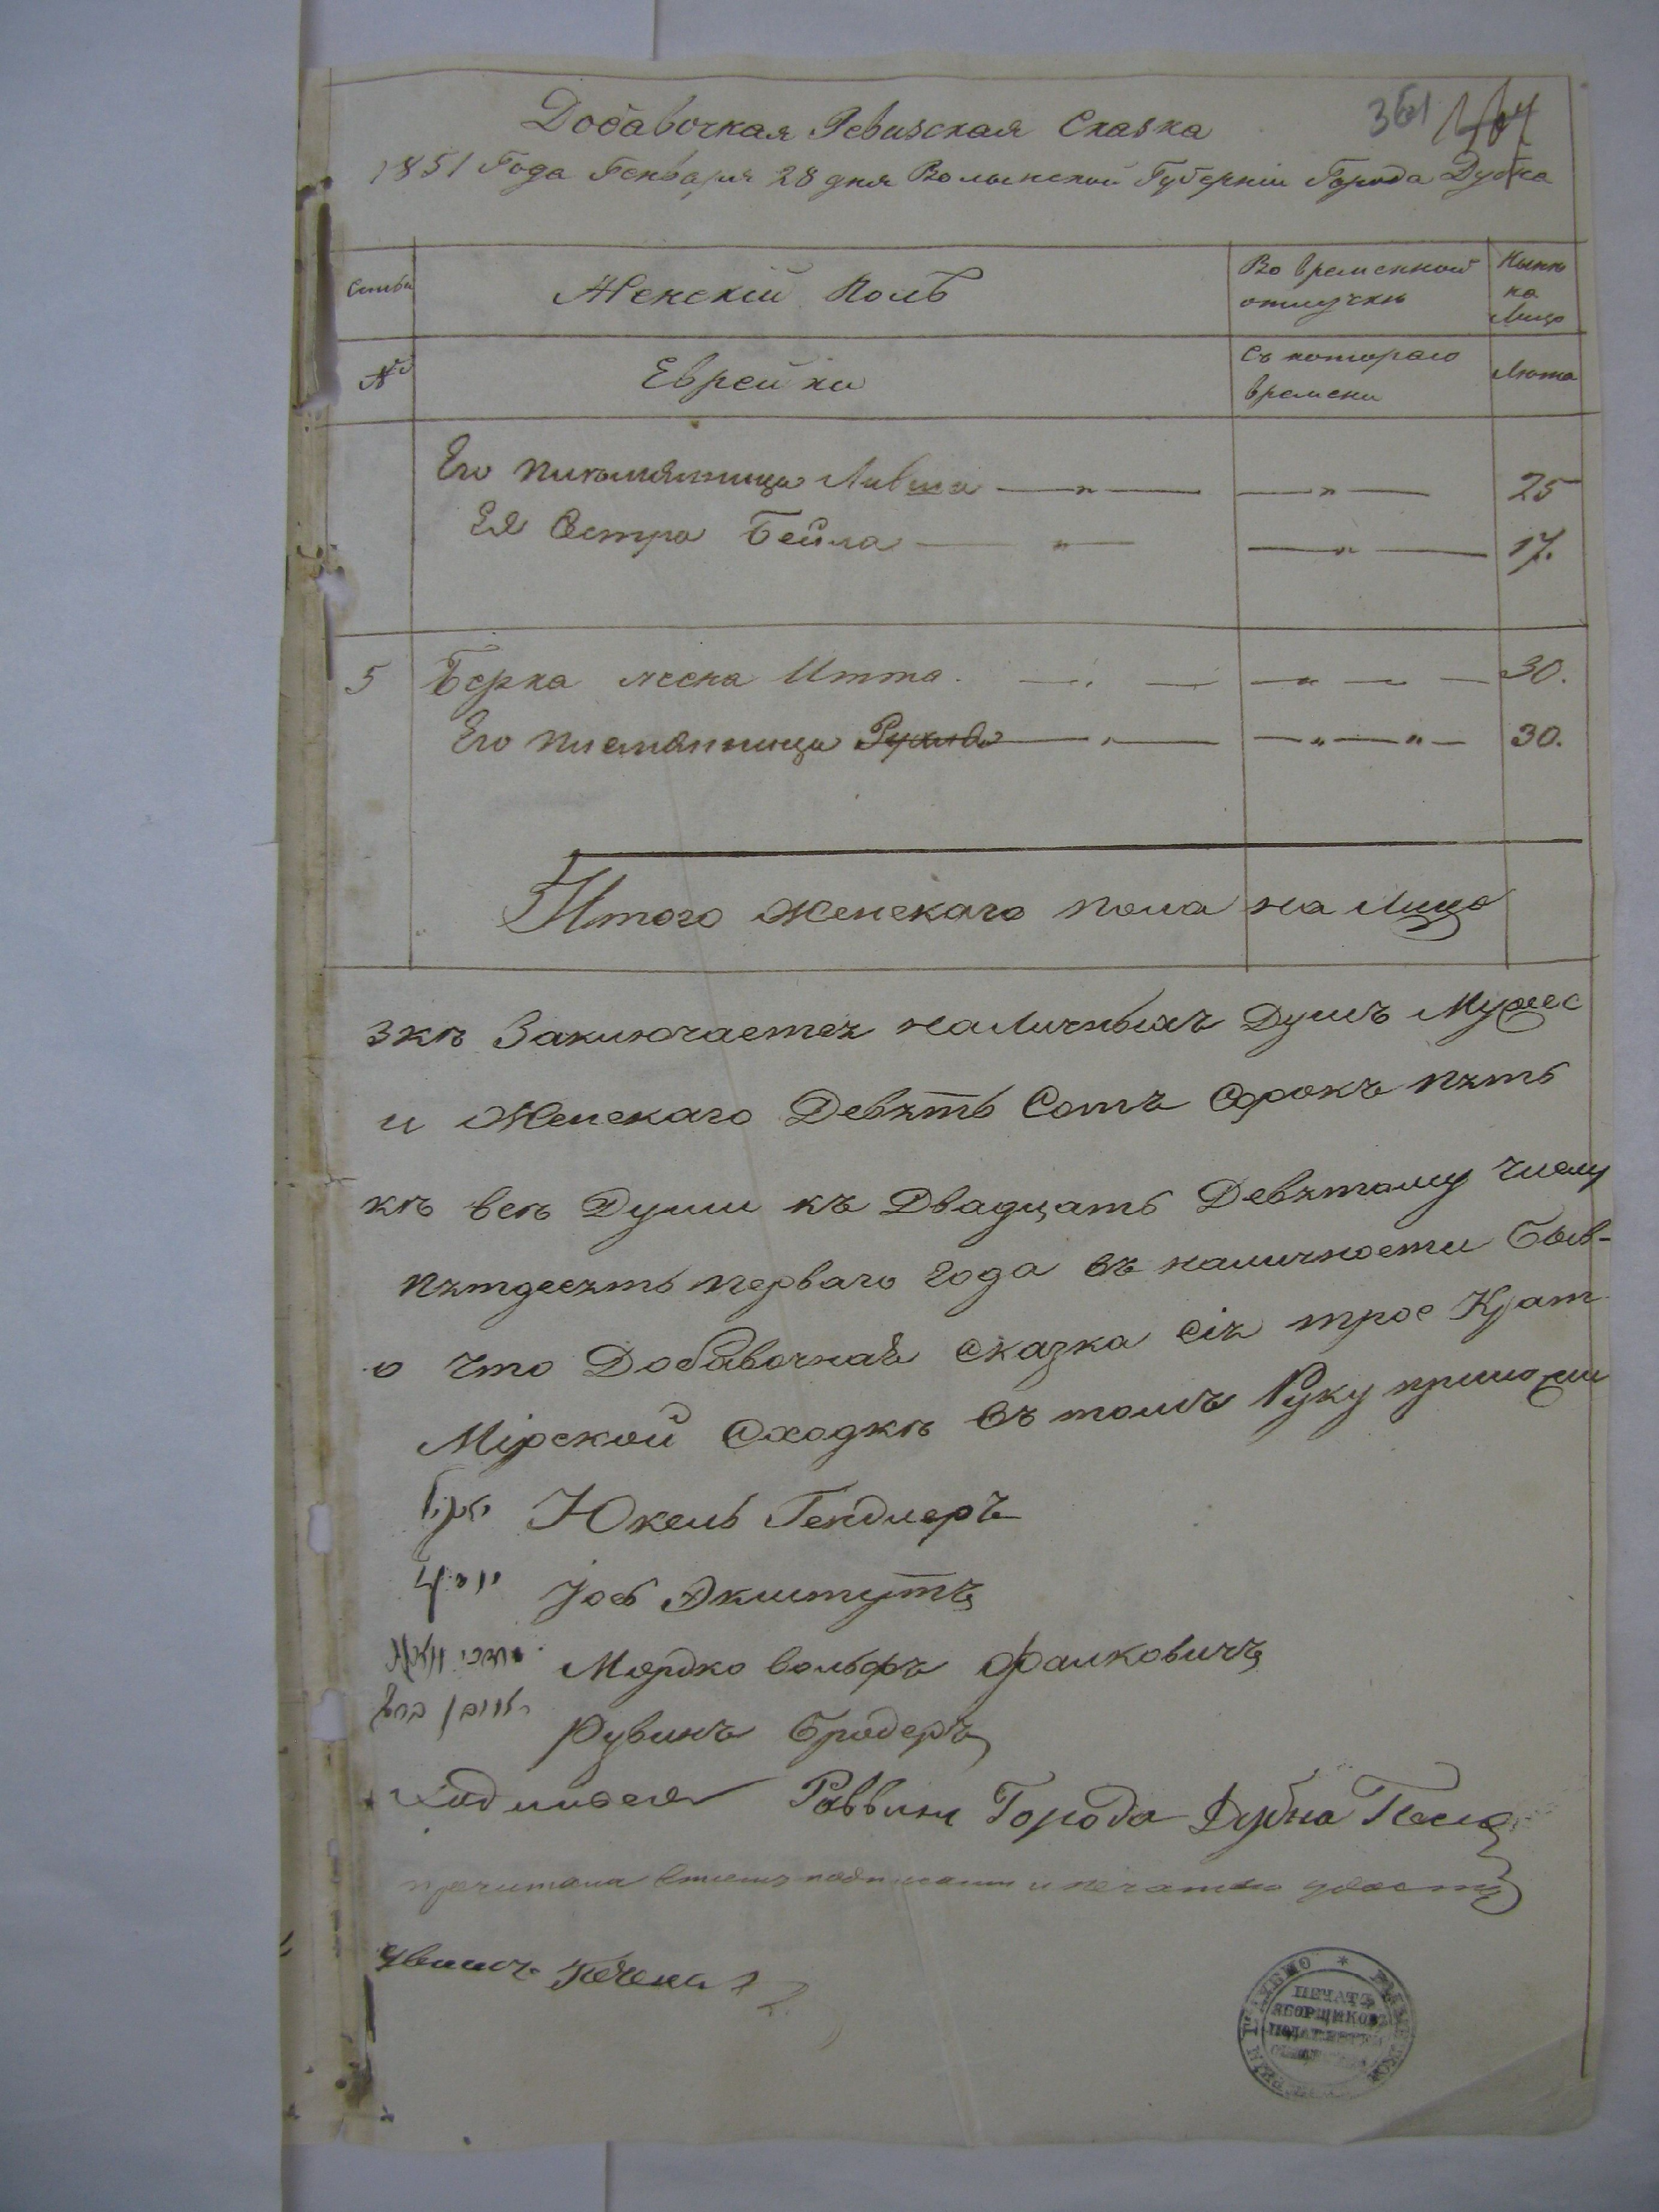 Добавочная Ревизская Сказка 361
1851 Года Генваря 28 дня Волынской Губерніи Города Дубна
Семьи Женскій Полъ Во временной отлучкѣ Нынѣ на лицо
№ Еврейки Съ котораго времени Лѣта
Его племянница Ливша — „ — — „ — 25
Ея Сестра Бейла — „ — — „ — 17.
5 Берка жена Итта. — „ — — „ — 30.
Его племянница — „ — — „ — „ — 30.
Итого женскаго пола на лицо
зкѣ Заключается наличныхъ Душъ Мужес
и Женскаго Девять Сотъ Сорокъ пять
кѣ всѣ Души къ Двадцать Девятому числу
пятдесять перваго года въ наличности быв-
о что Добавочная сказка сія трое Крат
Мірской Сходкѣ въ томъ Руку прилож
Юкель Гендлеръ
Іос Экштутъ
Мордко Вольфъ Фалковичъ
ראובן Рувинъ Бродеръ
Раввинъ Города Дубна
прочитана подписаны и печатью
ПЕЧАТЬ